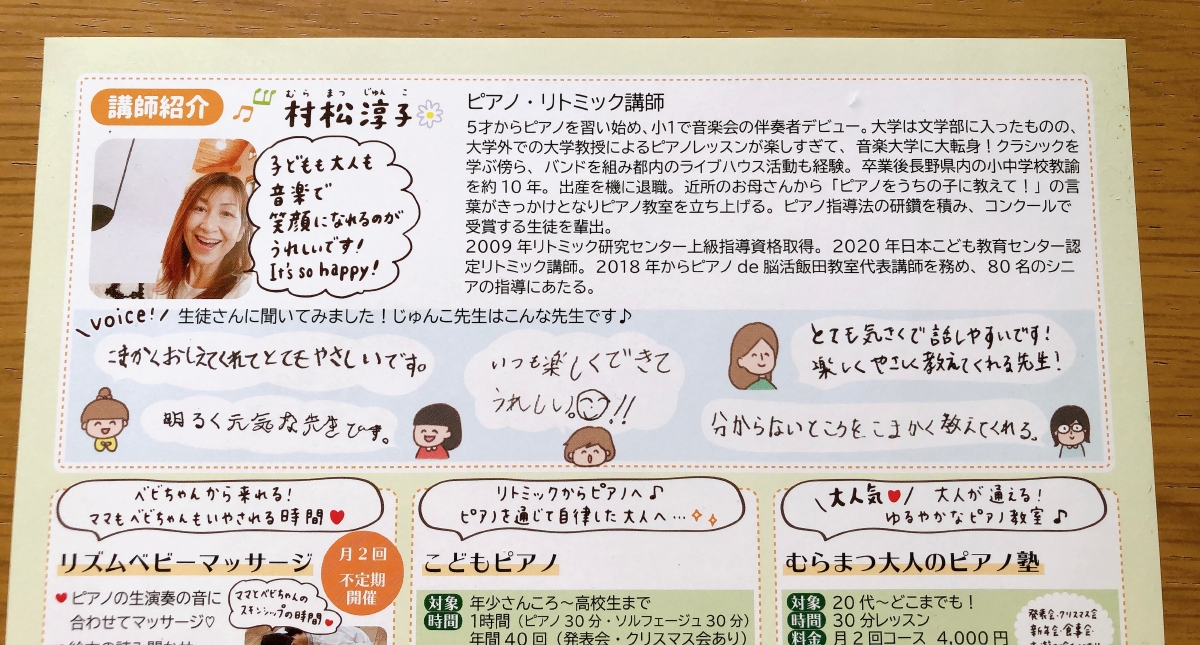 講師紹介
むら まつ じゅん こ
村松淳子
子どもも大人も
音楽で
笑顔になれるのが
うれしいです!
It's so happy!
ピアノ・リトミック講師
5才からピアノを習い始め、小1で音楽会の伴奏者デビュー。大学は文学部に入ったものの、
大学外での大学教授によるピアノレッスンが楽しすぎて、音楽大学に大転身!クラシックを
学ぶ傍ら、バンドを組み都内のライブハウス活動も経験。卒業後長野県内の小中学校教諭
を約10年。出産を機に退職。近所のお母さんから「ピアノをうちの子に教えて!」の言
葉がきっかけとなりピアノ教室を立ち上げる。ピアノ指導法の研鑽を積み、コンクールで
受賞する生徒を輩出。
2009年リトミック研究センター上級指導資格取得。2020年日本こども教育センター認
定リトミック講師。2018年からピアノde脳活飯田教室代表講師を務め、80名のシニ
アの指導にあたる。
voice! 生徒さんに聞いてみました!じゅんこ先生はこんな先生です♪
こまかくおしえてくれてとてもやさしいです。
いつも楽しくできて
うれしい。!!
とても気さくで話しやすいです!
楽しくやさしく教えてくれる先生!
明るく元気な先生です。
分からないところをこまかく教えてくれる。
ベビちゃんから来れる!
ママもベビちゃんもいやされる時間♥
リズムベビーマッサージ
月2回
不定期
開催
♥ピアノの生演奏の音に
合わせてマッサージ♡
ママとベビちゃんの
スキンシップの時間♥
リトミックからピアノへ♪
ピアノを通じて自律した大人へ…
こどもピアノ
対象 年少さんころ〜高校生まで
時間 1時間(ピアノ30分・ソルフェージュ30分)
年間40回(発表会・クリスマス会あり)
大人気♥ 大人が通える!
ゆるやかなピアノ教室♪
むらまつ大人のピアノ塾
対象 20代〜どこまでも!
時間 30分レッスン
料金 月2回コース 4,000円
発表会・クリスマス会
新年会・食事会